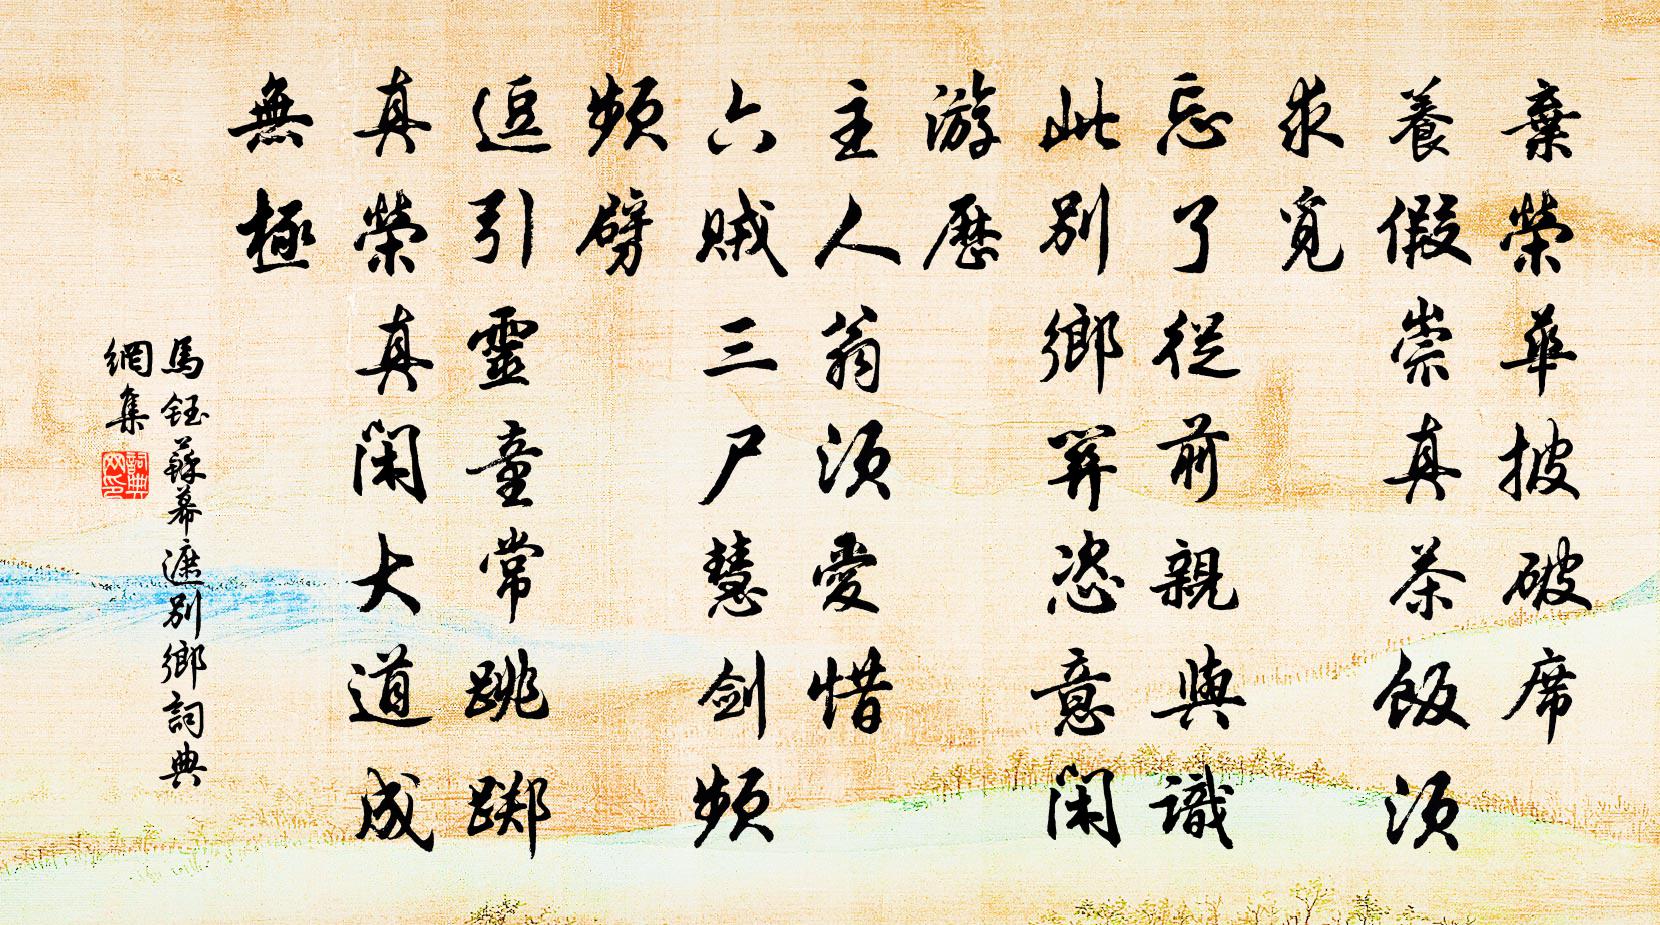 棄榮華披破席
養假崇真茶飯須
求覓
忘了從前親與識
此別鄉關恣意閑
游歷
主人翁須愛惜
六賊三尸慧劍頻
頻劈
逗引靈童常跳躑
真榮真閑大道成
無極
馬鈺蘇幕遮別鄉詞典
網集